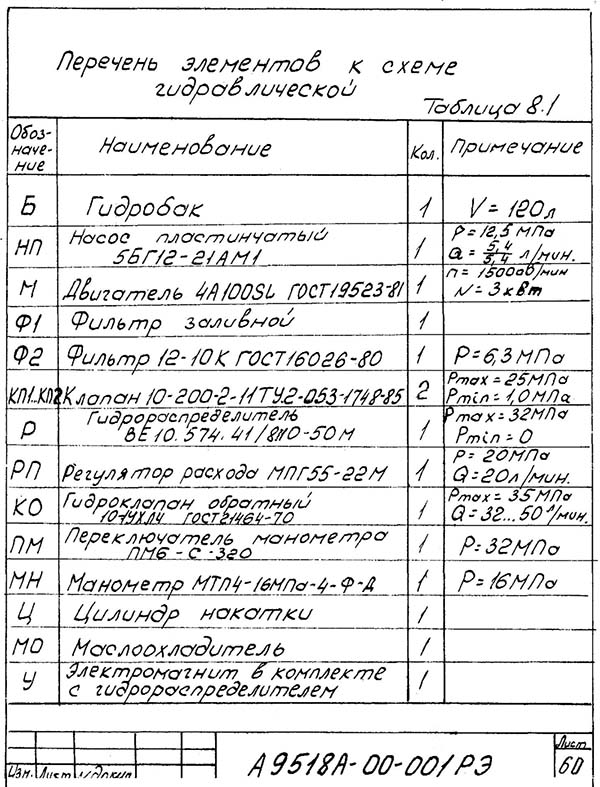 Перечень элементов к схеме
гидравлической
Таблица 8.1
Обоз-
наче-
ние
Наименование
Кол.
Примечание
Б Гидробак 1 V = 120л
НП Насос пластинчатый
5БГ12-21АМ1 1 Р=12,5 МПа
Q = 5,4/5,4 л/мин.
М Двигатель 4А100SL ГОСТ19523-81 1 n = 1500об/мин
N = 3кВт
Ф1 Фильтр заливной 1
Ф2 Фильтр 12-10К ГОСТ16026-80 1 Р=6,3МПа
КП1..КП2 Клапан 10-200-2-11ТУ.2-053-1748-85 2 Рmax=25МПа
Рmin=1,0МПа
Р Гидрораспределитель
ВЕ10.574.41/ 1 Рmax=32МПа
Рmin=0
РП Регулятор расхода МПГ55-22М 1 Р=20МПа
Q=20л/мин.
КО Гидроклапан обратный
ГОСТ21464-70 1 Рmax=35МПа
Q=32...50 л/мин.
ПМ Переключатель манометра
ПМ6-С-320 1 Р=32МПа
МН Манометр МТП4-16МПа-4-Ф-Д 1 Р=16МПа
Ц Цилиндр накатки 1
МО Маслоохладитель 1
У Электромагнит в комплекте
с гидрораспределителем 1
А9518А-00-001РЭ
Лист
60
Изм. Лист